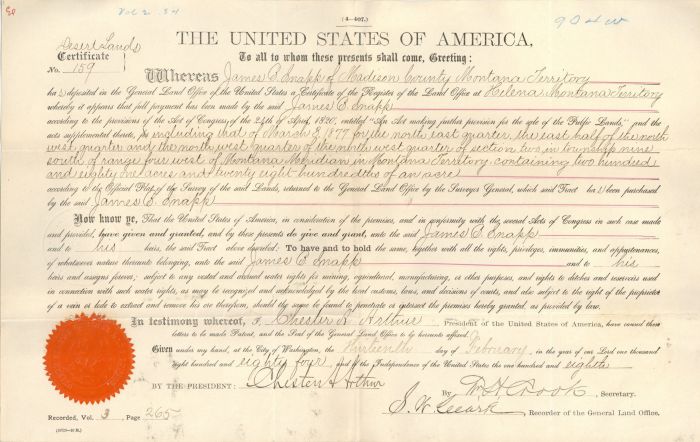 80
Vol 2. 54
(4—407.)
904 w
THE UNITED STATES OF AMERICA,
Desert Lands
Certificate
No. 159
To all to whom these presents shall come, Greeting:
Whereas James C. Snapp of Madison County Montana Territory
has deposited in the General Land Office of the United States a Certificate of the Register of the Land Office at Helena Montana Territory
whereby it appears that full payment has been made by the said James C. Snapp
according to the provisions of the Act of Congress of the 24th of April, 1820, entitled "An Act making further provision for the sale of the Public Lands," and the
acts supplemental thereto, including that of March 3, 1877 for the north east quarter, the east half of the north
west quarter and the north west quarter of the north west quarter of section two in township nine
south of range four west of Montana Meridian in Montana Territory containing two hundred
and eighty one acres and twenty eight hundredths of an acre
according to the Official Plat of the Survey of the said Lands, returned to the General Land Office by the Surveyor General, which said Tract has been purchased
by the said James C. Snapp
Now know ye, That the United States of America, in consideration of the premises, and in conformity with the several Acts of Congress in such case made
and provided, have given and granted, and by these presents do give and grant, unto the said James C. Snapp
and to his heirs, the said Tract above described: To have and to hold the same, together with all the rights, privileges, immunities, and appurtenances,
of whatsoever nature thereunto belonging, unto the said James C. Snapp and to his
heirs and assigns forever; subject to any vested and accrued water rights for mining, agricultural, manufacturing, or other purposes, and rights to ditches and reservoirs used
in connection with such water rights, as may be recognized and acknowledged by the local customs, laws, and decisions of courts, and also subject to the right of the proprietor
of a vein or lode to extract and remove his ore therefrom, should the same be found to penetrate or intersect the premises hereby granted, as provided by law.
In testimony whereof, I, Chester A. Arthur, President of the United States of America, have caused these
letters to be made Patent, and the Seal of the General Land Office to be hereunto affixed.
Given under my hand, at the City of Washington, the thirteenth day of February, in the year of our Lord one thousand
eight hundred and eighty four, and of the Independence of the United States the one hundred and eighth
BY THE PRESIDENT: Chester A Arthur
By Wm H Crook, Secretary.
S. W. Clark, Recorder of the General Land Office.
Recorded, Vol. 3, Page 265